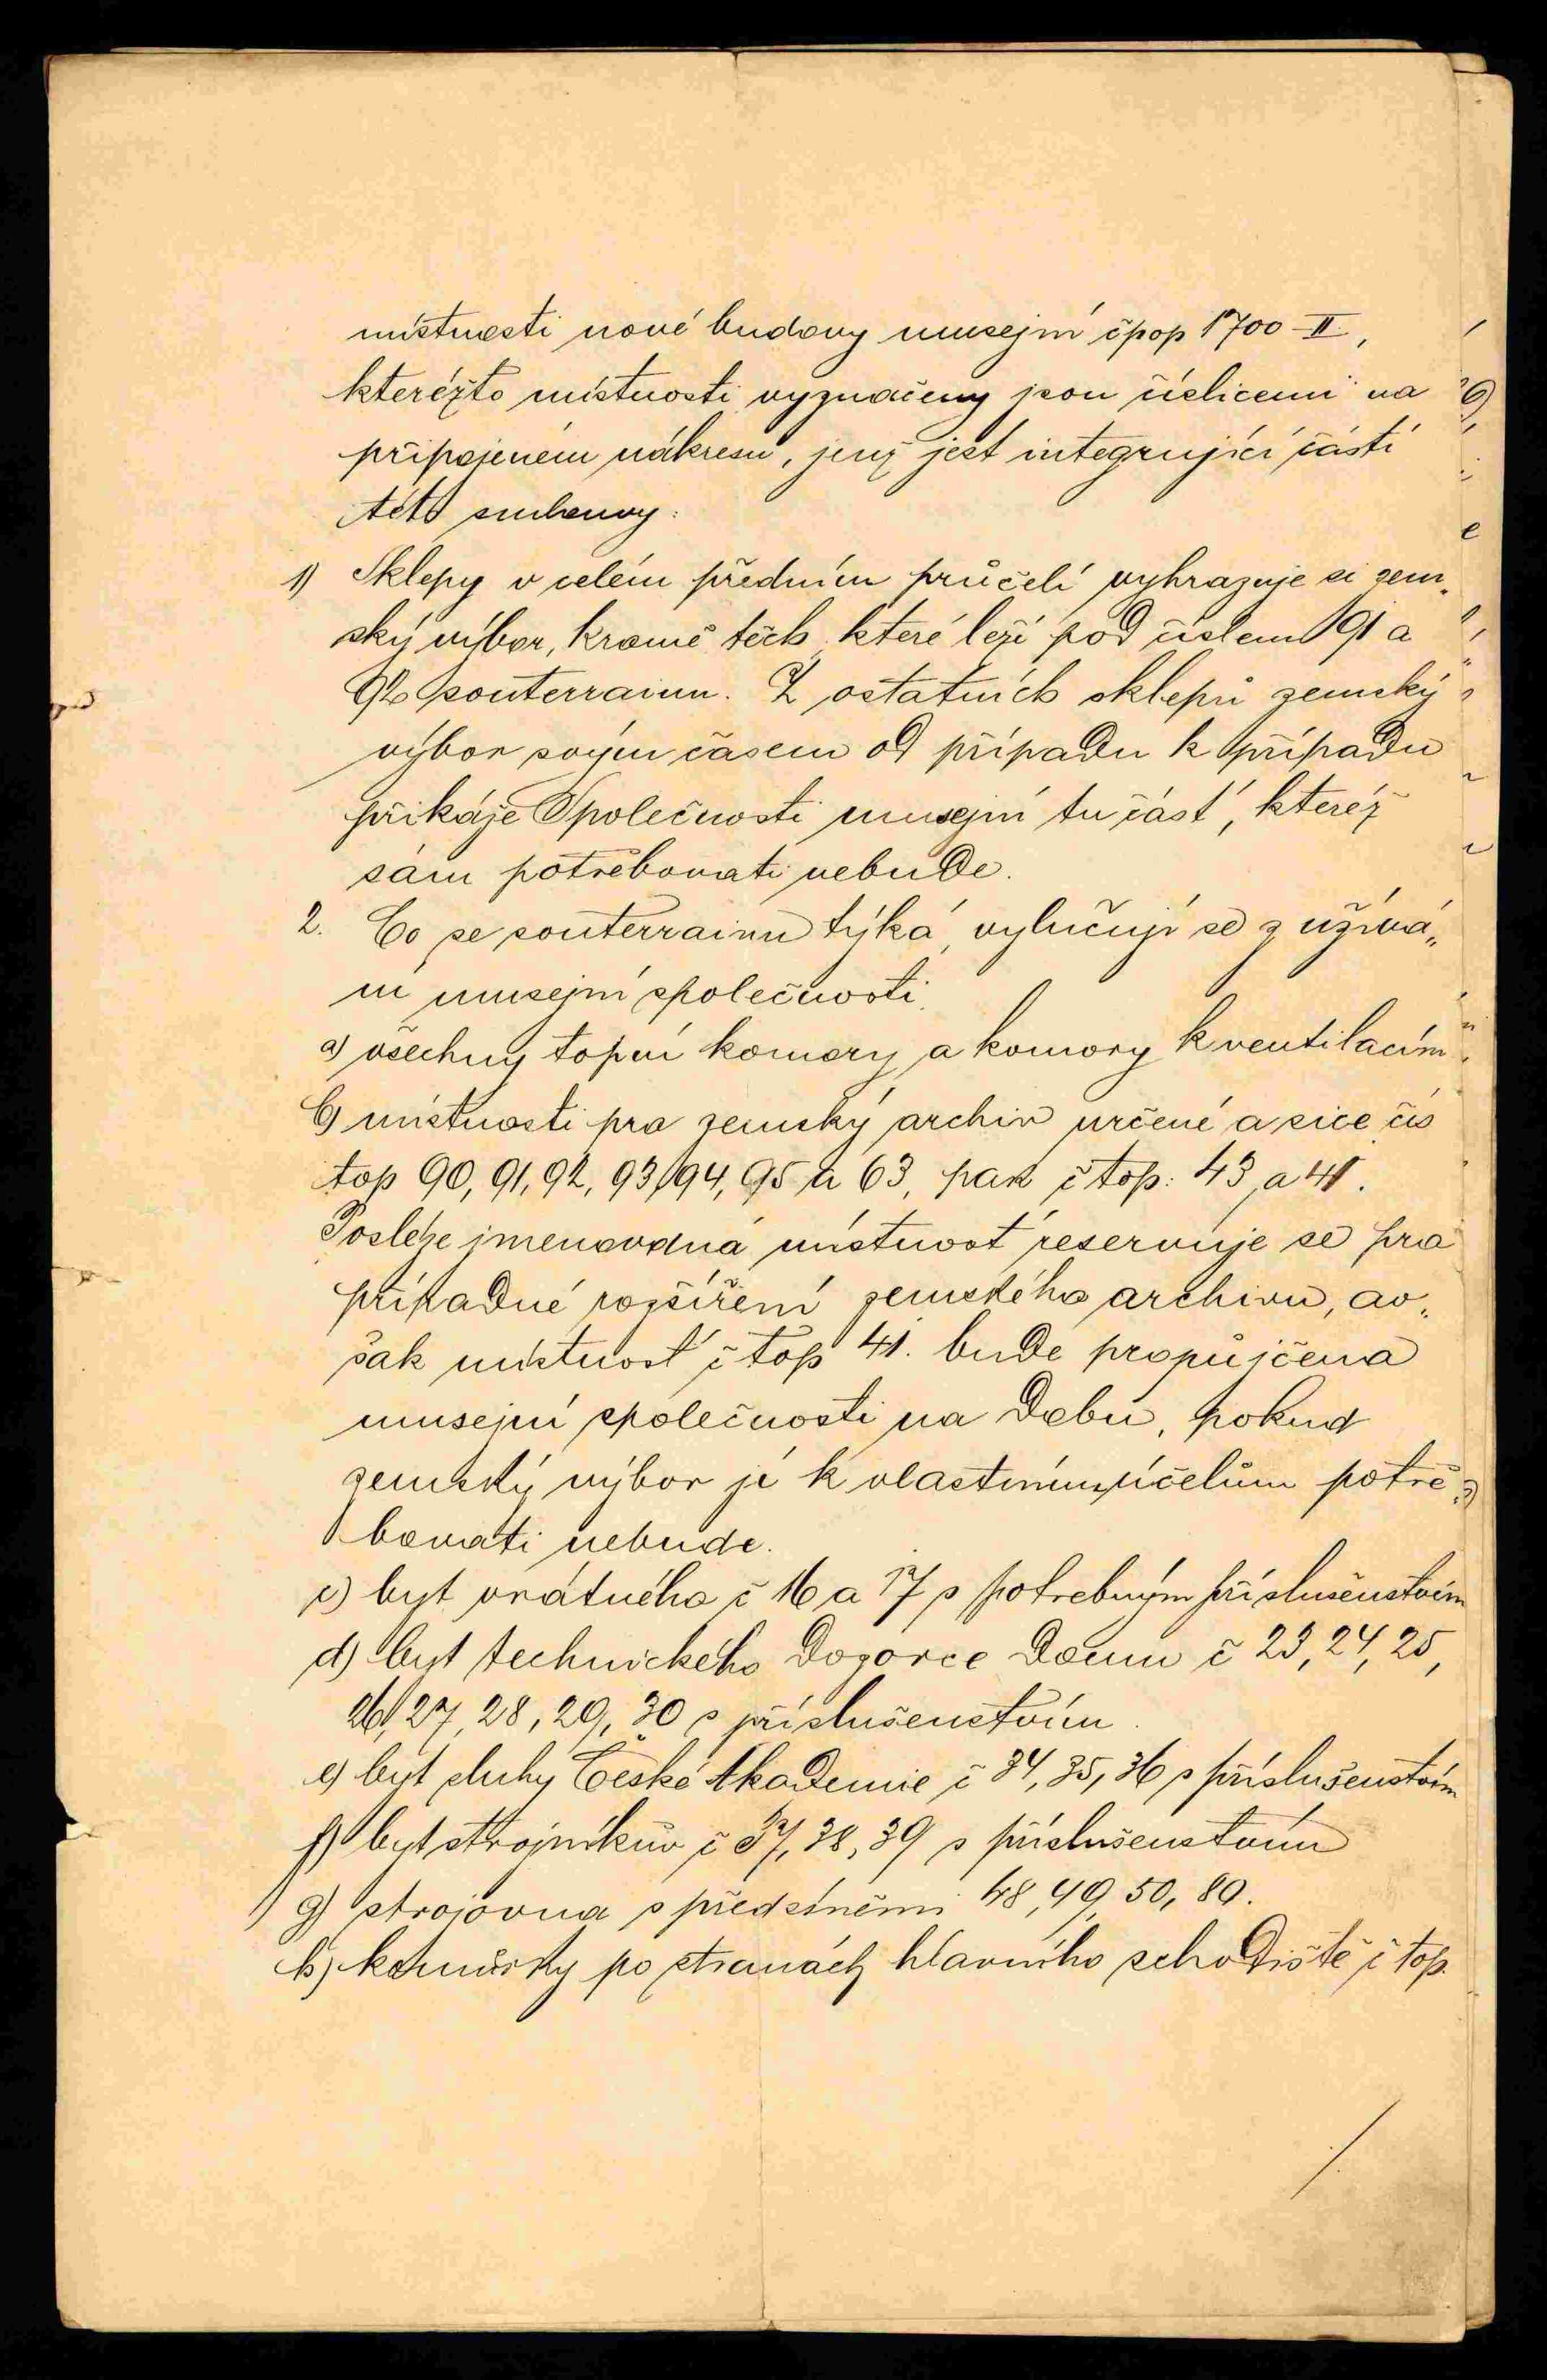 místnosti nové budovy musejní čpop 1700-II.,
kterézto místnosti vyznačeny jsou číslicemi na
připojeném nákresu, jenž jest integrující částí
této smlouvy:
1) Sklepy v celém předním průčelí vyhrazuje si zem„
ský výbor, kromě těch, které leží pod číslem 91 a
92 souterrainu. Z ostatních sklepů zemský
výbor svým časem od případu k případu
přikáže Společnosti musejní tu část, kteréž
sám potřebovati nebude.
2. Co se souterrainu týká, vylučují se z užívá„
ní musejní společnosti
a) všechny topní komory a komory k ventilacím
b) místnosti pro zemský archiv určené a sice čís
top 90, 91, 92, 93, 94, 95 a 63, pak č top: 43 a 41.
Posléze jmenovaná místnost reservuje se pro
případné rozšíření zemského archivu, av„
šak místnost č top 41. bude propůjčena
musejní společnosti na dobu, pokud
zemský výbor jí k vlastním účelům potře„
bovati nebude.
c) byt vrátného č 16 a 17 s potrebným příslušenstvím
d) byt technického dozorce domu č 23, 24, 25,
26, 27, 28, 29, 30 s příslušenstvím.
e) byt sluhy České Akademie č 34, 35, 36 s příslušenstvím
f) byt strojníkův č 37, 38, 39 s příslušenstvím
g) strojovna s předsíněmi 48, 49, 50, 80.
h) komůrky po stranách hlavního schodiště č top.
/.